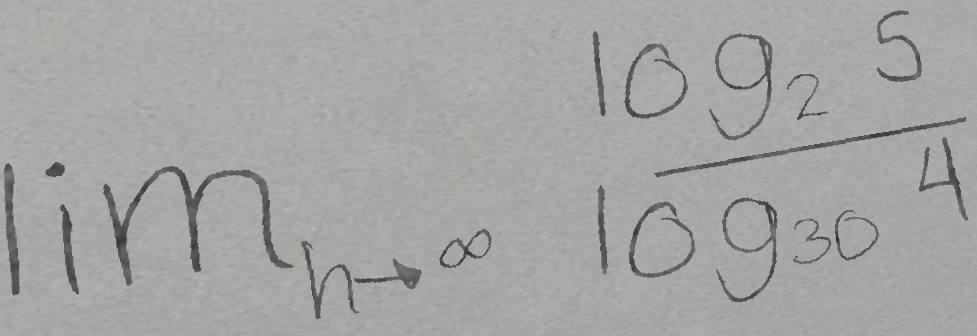 lim n→∞ log₂ 5 / log₃₀ 4